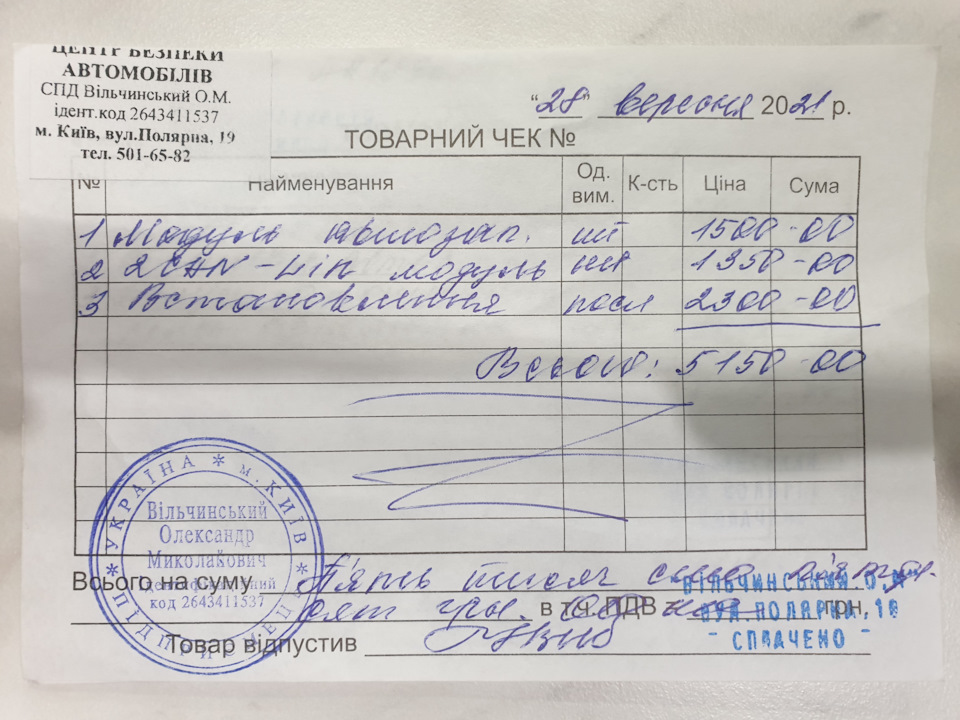 ЦЕНТР БЕЗПЕКИ
АВТОМОБІЛІВ
СПД Вільчинський О.М.
ідент.код 2643411537
м. Київ, вул.Полярна, 19
тел. 501-65-82
"28" вересня 2021 р.
ТОВАРНИЙ ЧЕК №
№ Найменування Од. вим. К-сть Ціна Сума
1 Модуль автозап. шт 1500-00
2 2CAN-Lin модуль шт 1350-00
3 Встановлення посл 2300-00
Всього: 5150-00
УКРАЇНА * м. КИЇВ * ПІДПРИЄМЕЦЬ *
Вільчинський
Олександр
Миколайович
Ідентифікаційний
код 2643411537
Всього на суму П'ять тисяч сто
грн. 00 в т.ч. ПДВ грн.
Товар відпустив
ВІЛЬЧИНСЬКИЙ О.
ВУЛ.ПОЛЯРНА,19
- СПЛАЧЕНО -